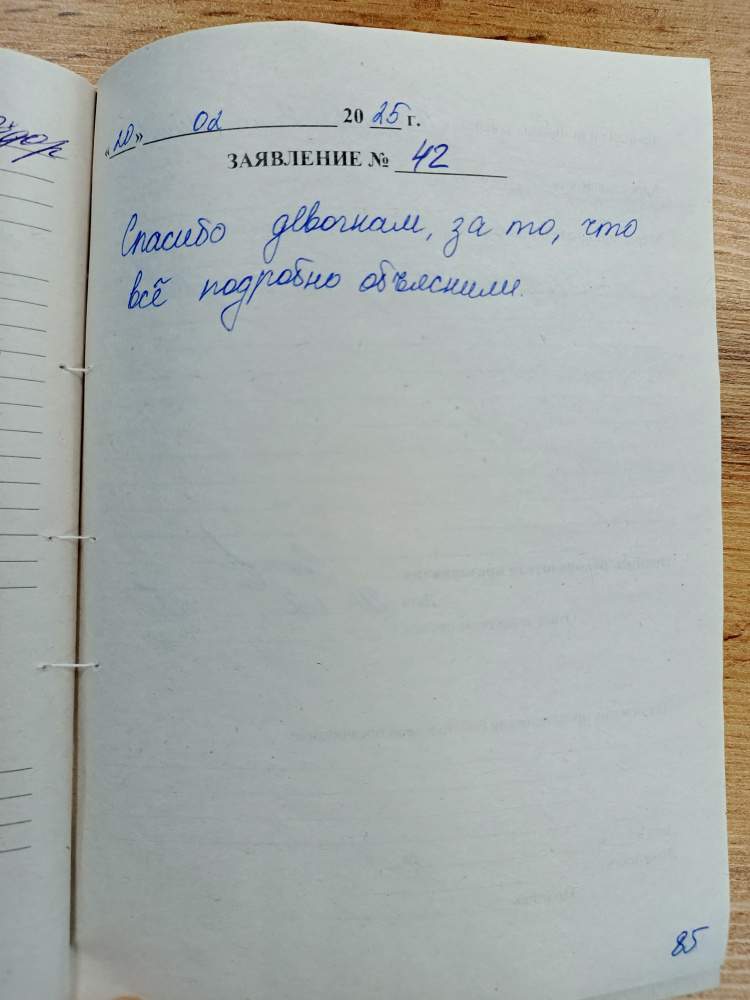 «20» 02 2025 г.
ЗАЯВЛЕНИЕ № 42
Спасибо девочкам, за то, что
всё подробно объяснили.
85